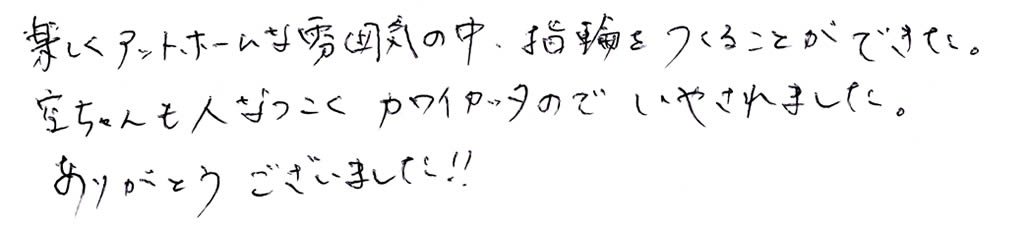 楽しくアットホームな雰囲気の中、指輪をつくることができた。
空ちゃんも人なつこくカワイカッタのでいやされました。
ありがとうございました!!